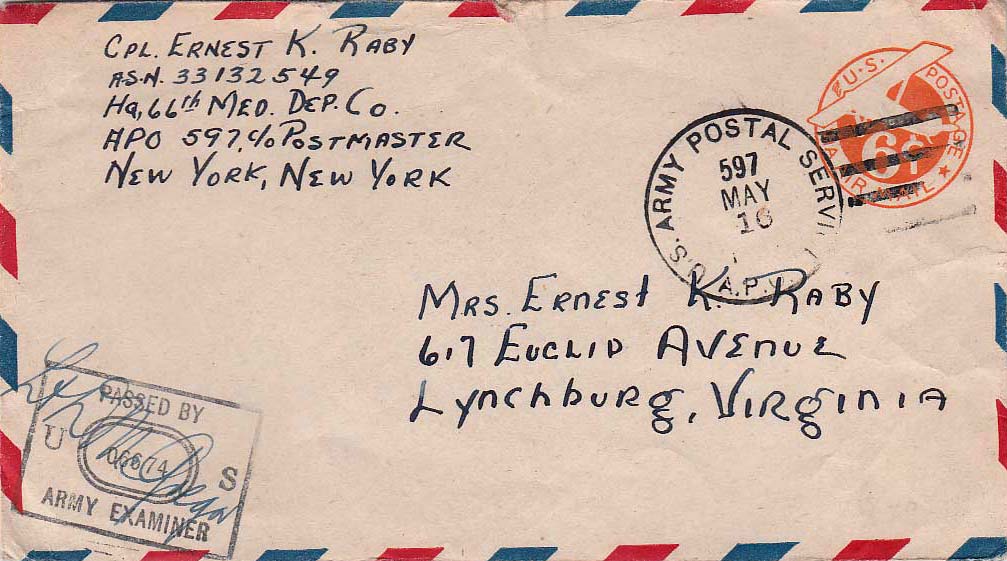 CPL. ERNEST K. RABY
ASN. 33132549
Hq, 66th MED. DEP. Co.
APO 597, c/o POSTMASTER
NEW YORK, NEW YORK
U.S. POSTAGE
6¢
AIR MAIL
U.S. ARMY POSTAL SERVI
597
MAY
16
A.P.
MRS. ERNEST K. RABY
617 EUCLID AVENUE
Lynchburg, VIRginIA
PASSED BY
U 06674 S
ARMY EXAMINER